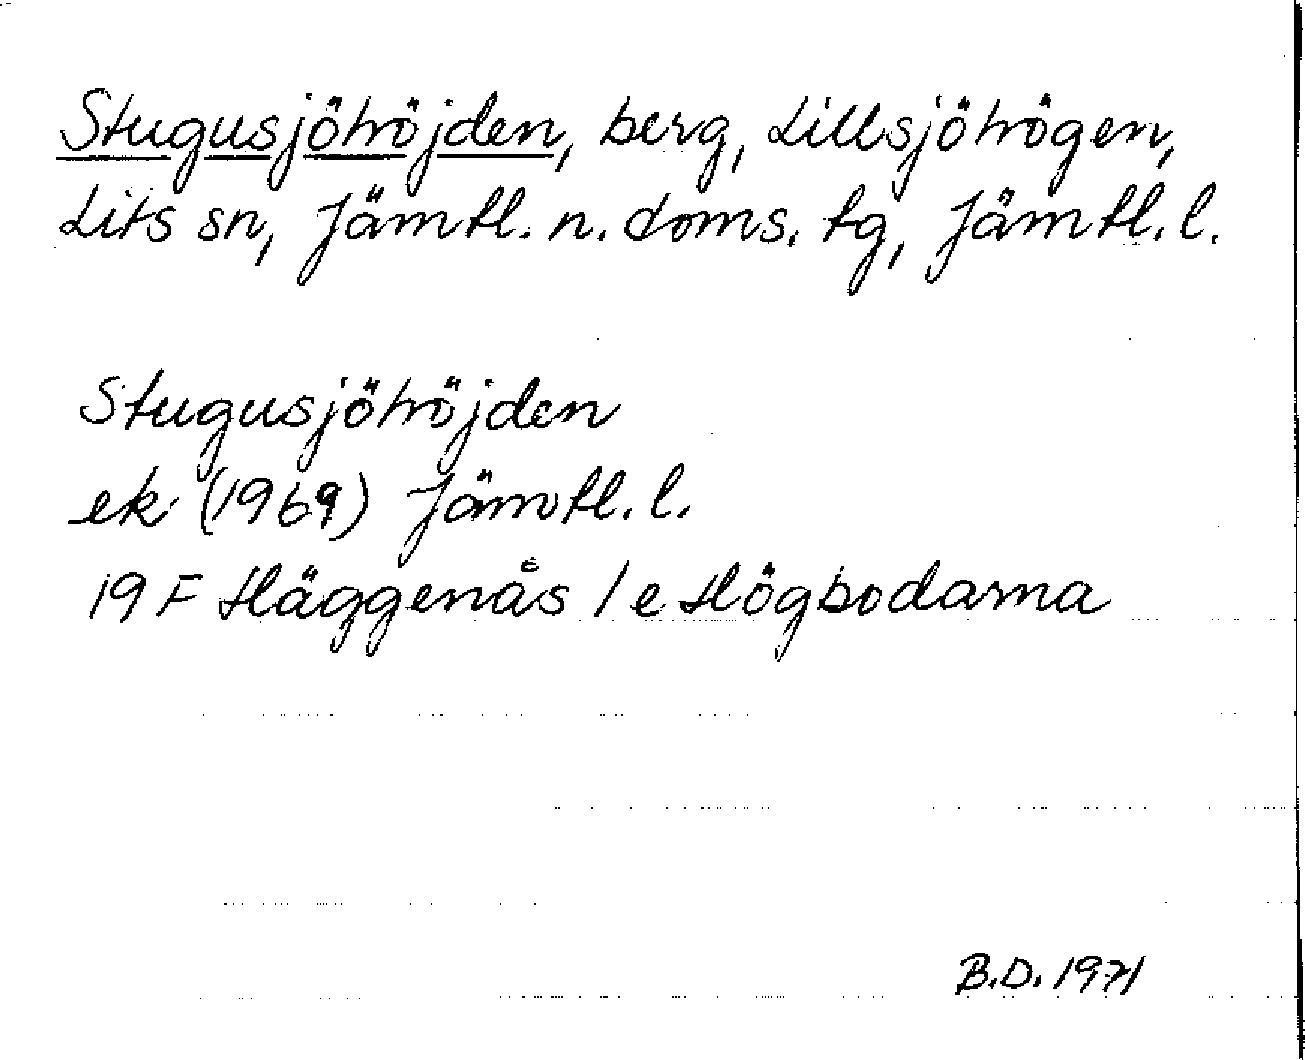 Stugusjöhöjden, berg, Lillsjöhögen,
Lits sn, Jämtl. n. doms. tg, Jämtl. l.
Stugusjöhöjden
ek (1969) Jämtl. l.
19 F Häggenås / e Högbodarna
B.D. 1971